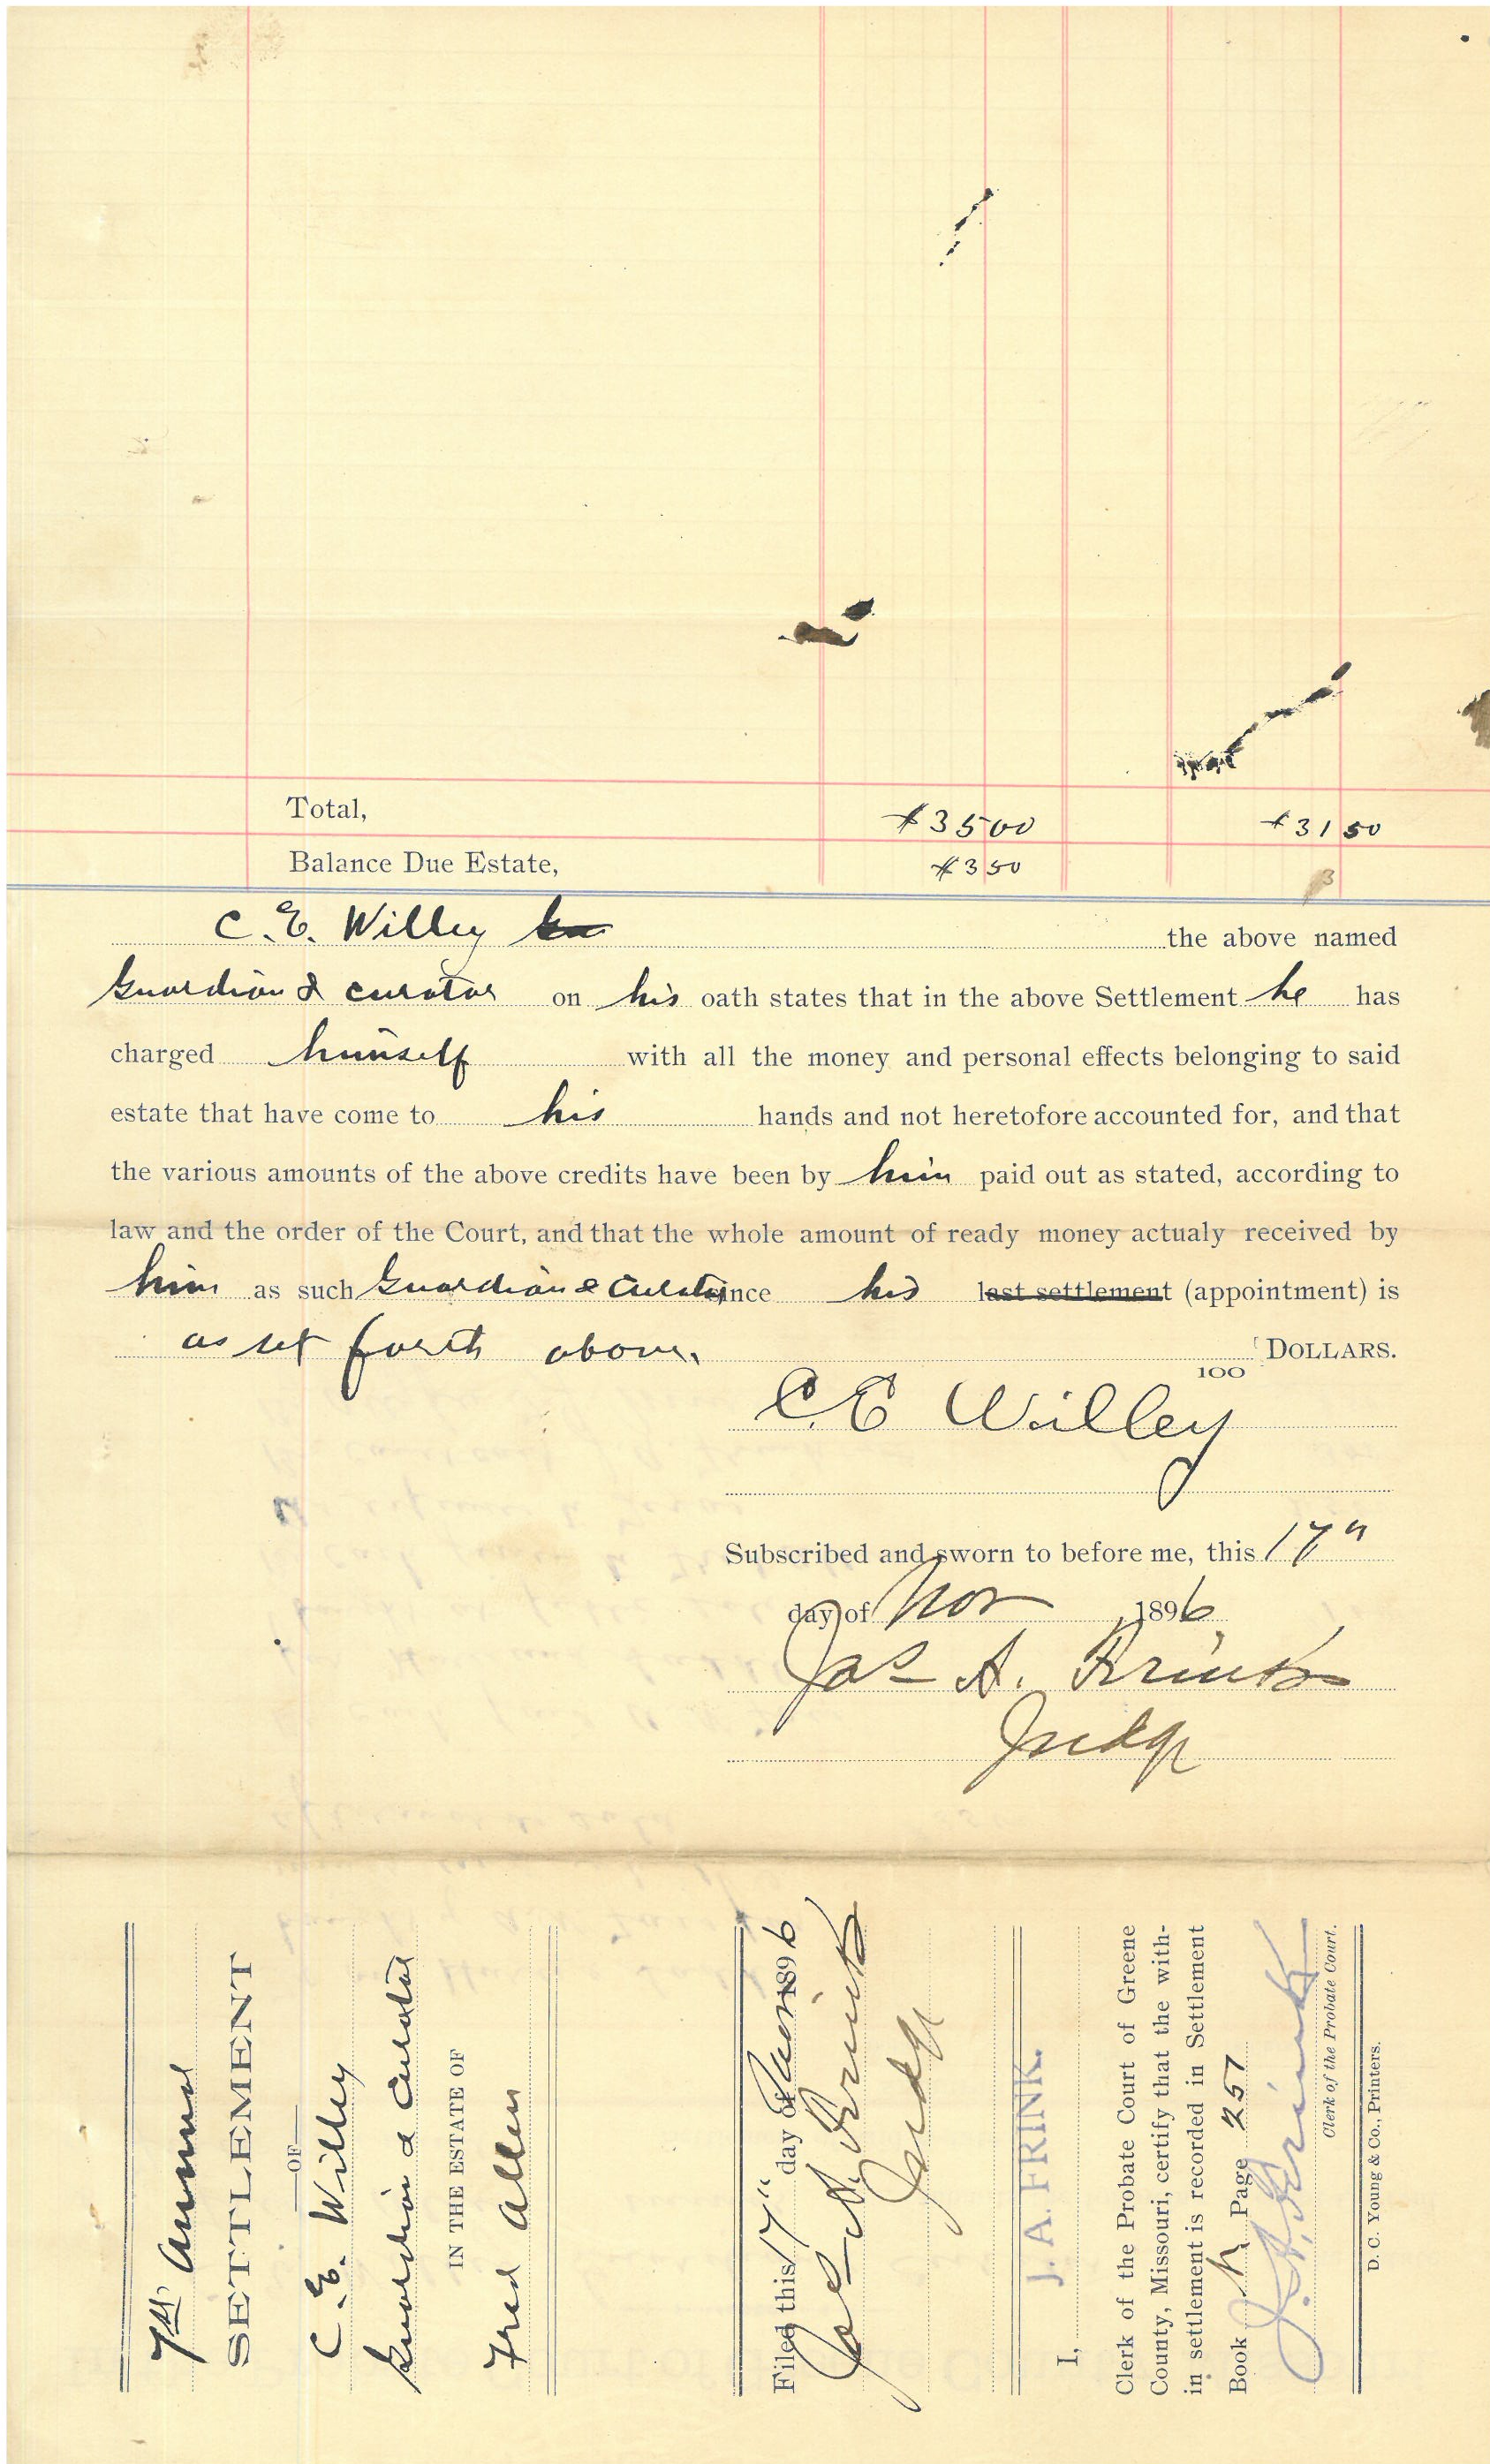 Total, $35 00 $31 50
Balance Due Estate, $3 50 3
C. E. Willey the above named
Guardian & curator on his oath states that in the above Settlement he has
charged himself with all the money and personal effects belonging to said
estate that have come to his hands and not heretofore accounted for, and that
the various amounts of the above credits have been by him paid out as stated, according to
law and the order of the Court, and that the whole amount of ready money actualy received by
him as such Guardian & Curator since his last settlement (appointment) is
as set forth above. 100 DOLLARS.
C. E Willey
Subscribed and sworn to before me, this 17"
day of Nov 1896
Jas A. Frink
Judge
7th annual
SETTLEMENT
OF
C. E. Willey
Guardian & Curator
IN THE ESTATE OF
Fred Allen
Filed this 17" day of 1896
Jas A. Frink
Judge
I, J. A. FRINK.
Clerk of the Probate Court of Greene
County, Missouri, certify that the with-
in settlement is recorded in Settlement
Book Page 257
J. A. Frink
Clerk of the Probate Court.
D. C. Young & Co., Printers.